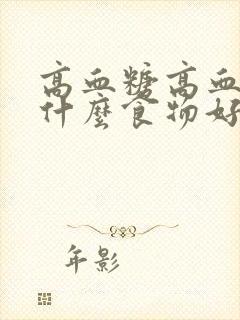 高血糖高血
什麼食物好
年影